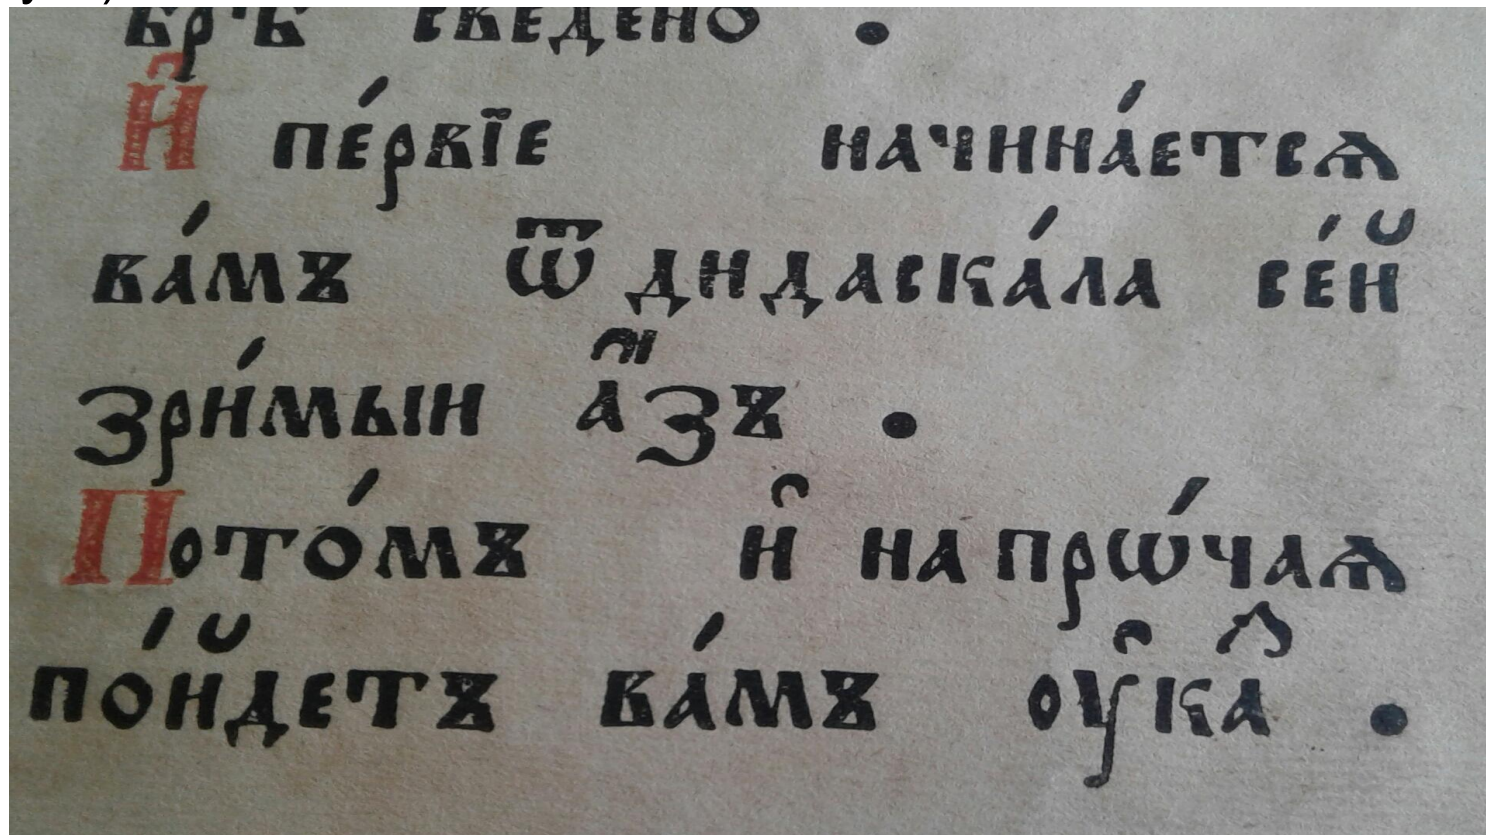 сведено .
И҆ пе́рвїе начина́етсѧ
ва́мъ ѿ дидаска́ла се́й
зри́мыи а҆́зъ .
Пото́мъ и҆ на прѡ́чаѧ
по́йдетъ ва́мъ оу҆ка́ .